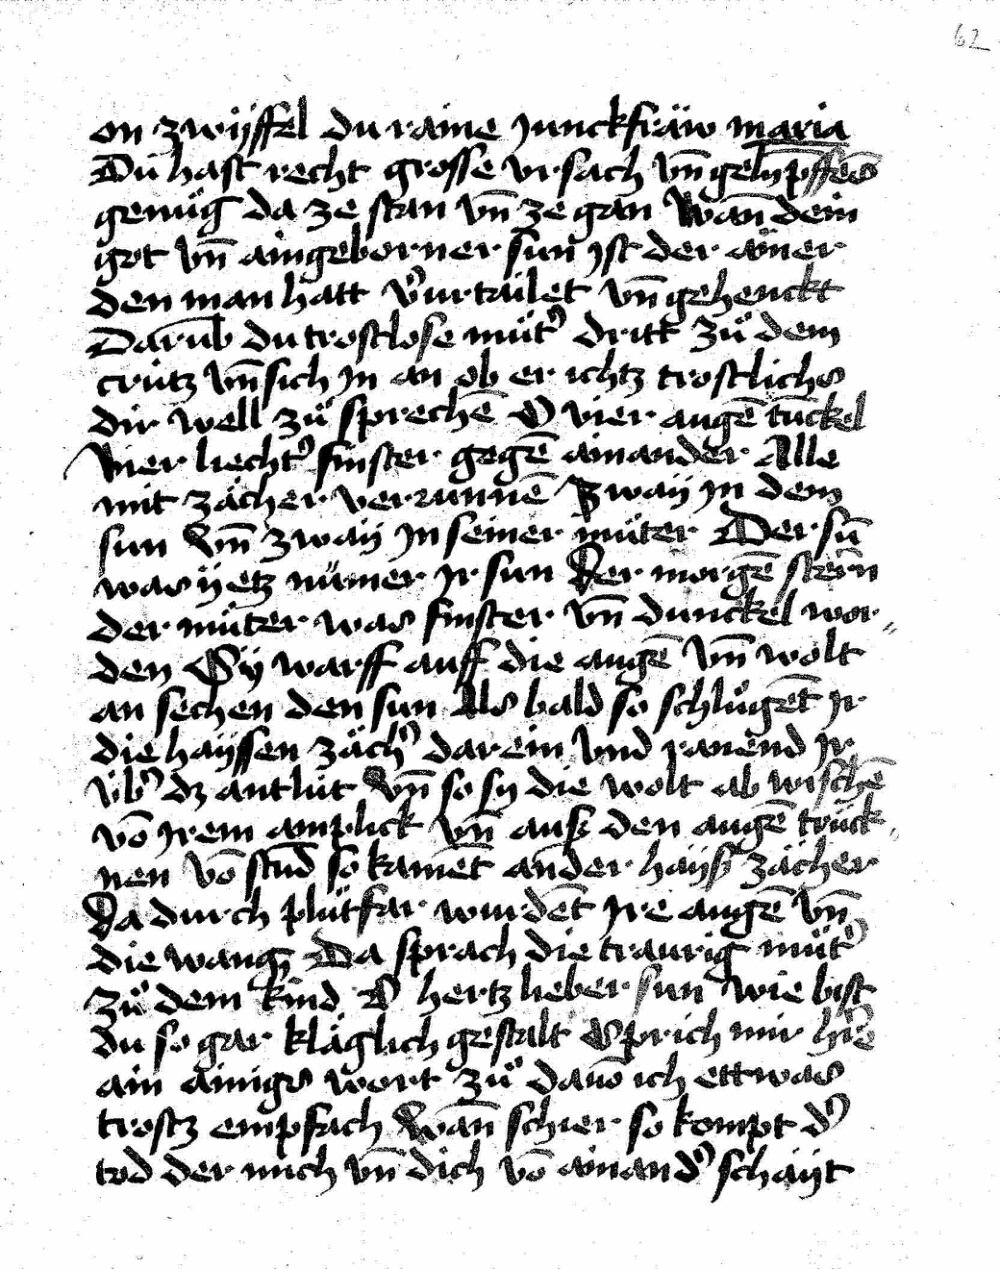 62
on zwyffel du raine junckfräw maria
Du hast recht grosse ursach vn̄ gelīpffēs
genüg da ze stan vn̄ ze gan Wan̄ dein
got vn̄ aingeborner sun ist der ainer
den man hatt v̉urtailet vn̄ gehenckt
Darūb du trostlose müt̉ dritt zů dem
crütz vn̄ sich in an ob er ichtz trostlichs
dir well zů sprechē O vier augē tūckel
vier liecht̉ finster gegē ainander Alle
mit zächer verrunnē Zway in dem
sun Vn̄ zway in seiner müter Der sun̄
was yetz nümer ir sun Der morgē stern̄
der müter was finster vn̄ dunckel wor„
den Sy warff auff die augē vn̄ wolt
an sechen den sun Als bald so schlůgēt ir
die hayssen zäch̉ darein Vnd ranend ir
üb̉ dz antlüt Vn̄ so sy die wolt ab wischē
vō irem anplick vn̄ auß den augē trück„
nen vō stūd so kamēt ander hayß zächer
Da durch plütfar wurdēt ire augē vn̄
die wang Da sprach die traurig müt̉
zů dem kind O hertz lieber sun wie bist
du so gar kläglich gestalt Sprich mir hie
ain ainigs wort zů dauō ich ettwas
trostz empfach Wan̄ schier so kompt d̉
tod der mich vn̄ dich vō ainand̉ schayt